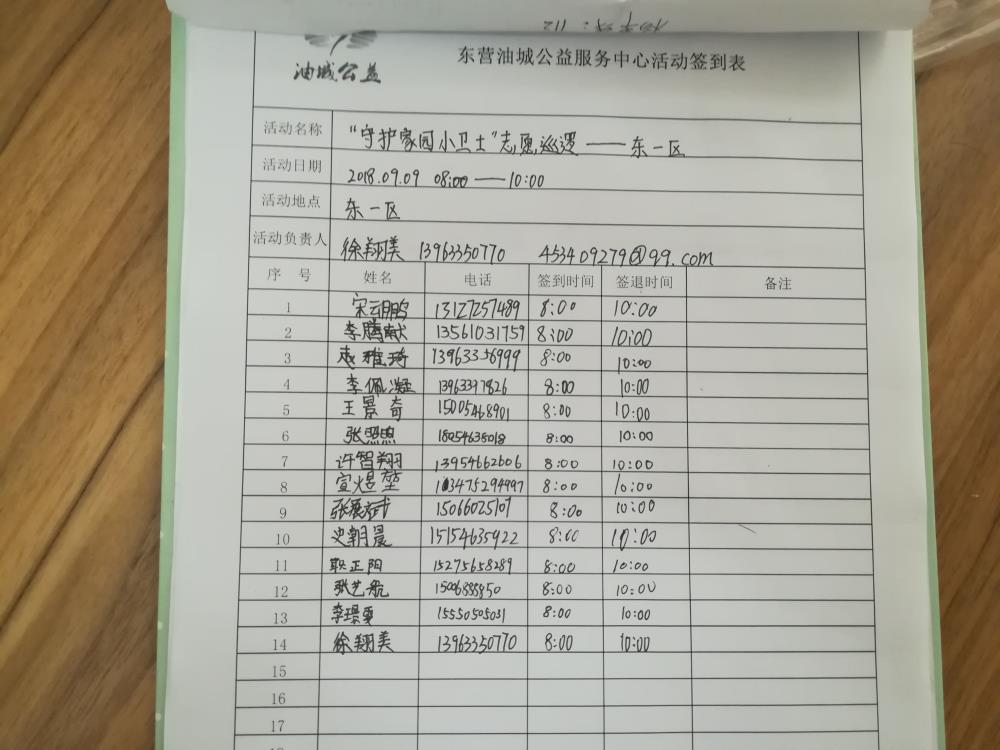 油城公益
东营油城公益服务中心活动签到表
活动名称 "守护家园小卫士"志愿巡逻——东一区
活动日期 2018.09.09 08:00——10:00
活动地点 东一区
活动负责人 徐翔美 13963350770 453409279@qq.com
序 号 姓名 电话 签到时间 签退时间 备注
1 宋云鹏 13127257489 8:00 10:00
2 李腾献 13561031759 8:00 10:00
3 雅琦 13963356999 8:00 10:00
4 李佩凝 13963397826 8:00 10:00
5 王景奇 15005468901 8:00 10:00
6 张照煦 18054635018 8:00 10:00
7 许智翔 13954662606 8:00 10:00
8 宣煜堃 8:00 10:00
9 张展斌 15066025107 8:00 10:00
10 史朝晨 15154635922 8:00 10:00
11 耿正阳 15275658289 8:00 10:00
12 张艺航 8:00 10:00
13 李璟雯 15550505031 8:00 10:00
14 徐翔美 13963350770 8:00 10:00
15
16
17